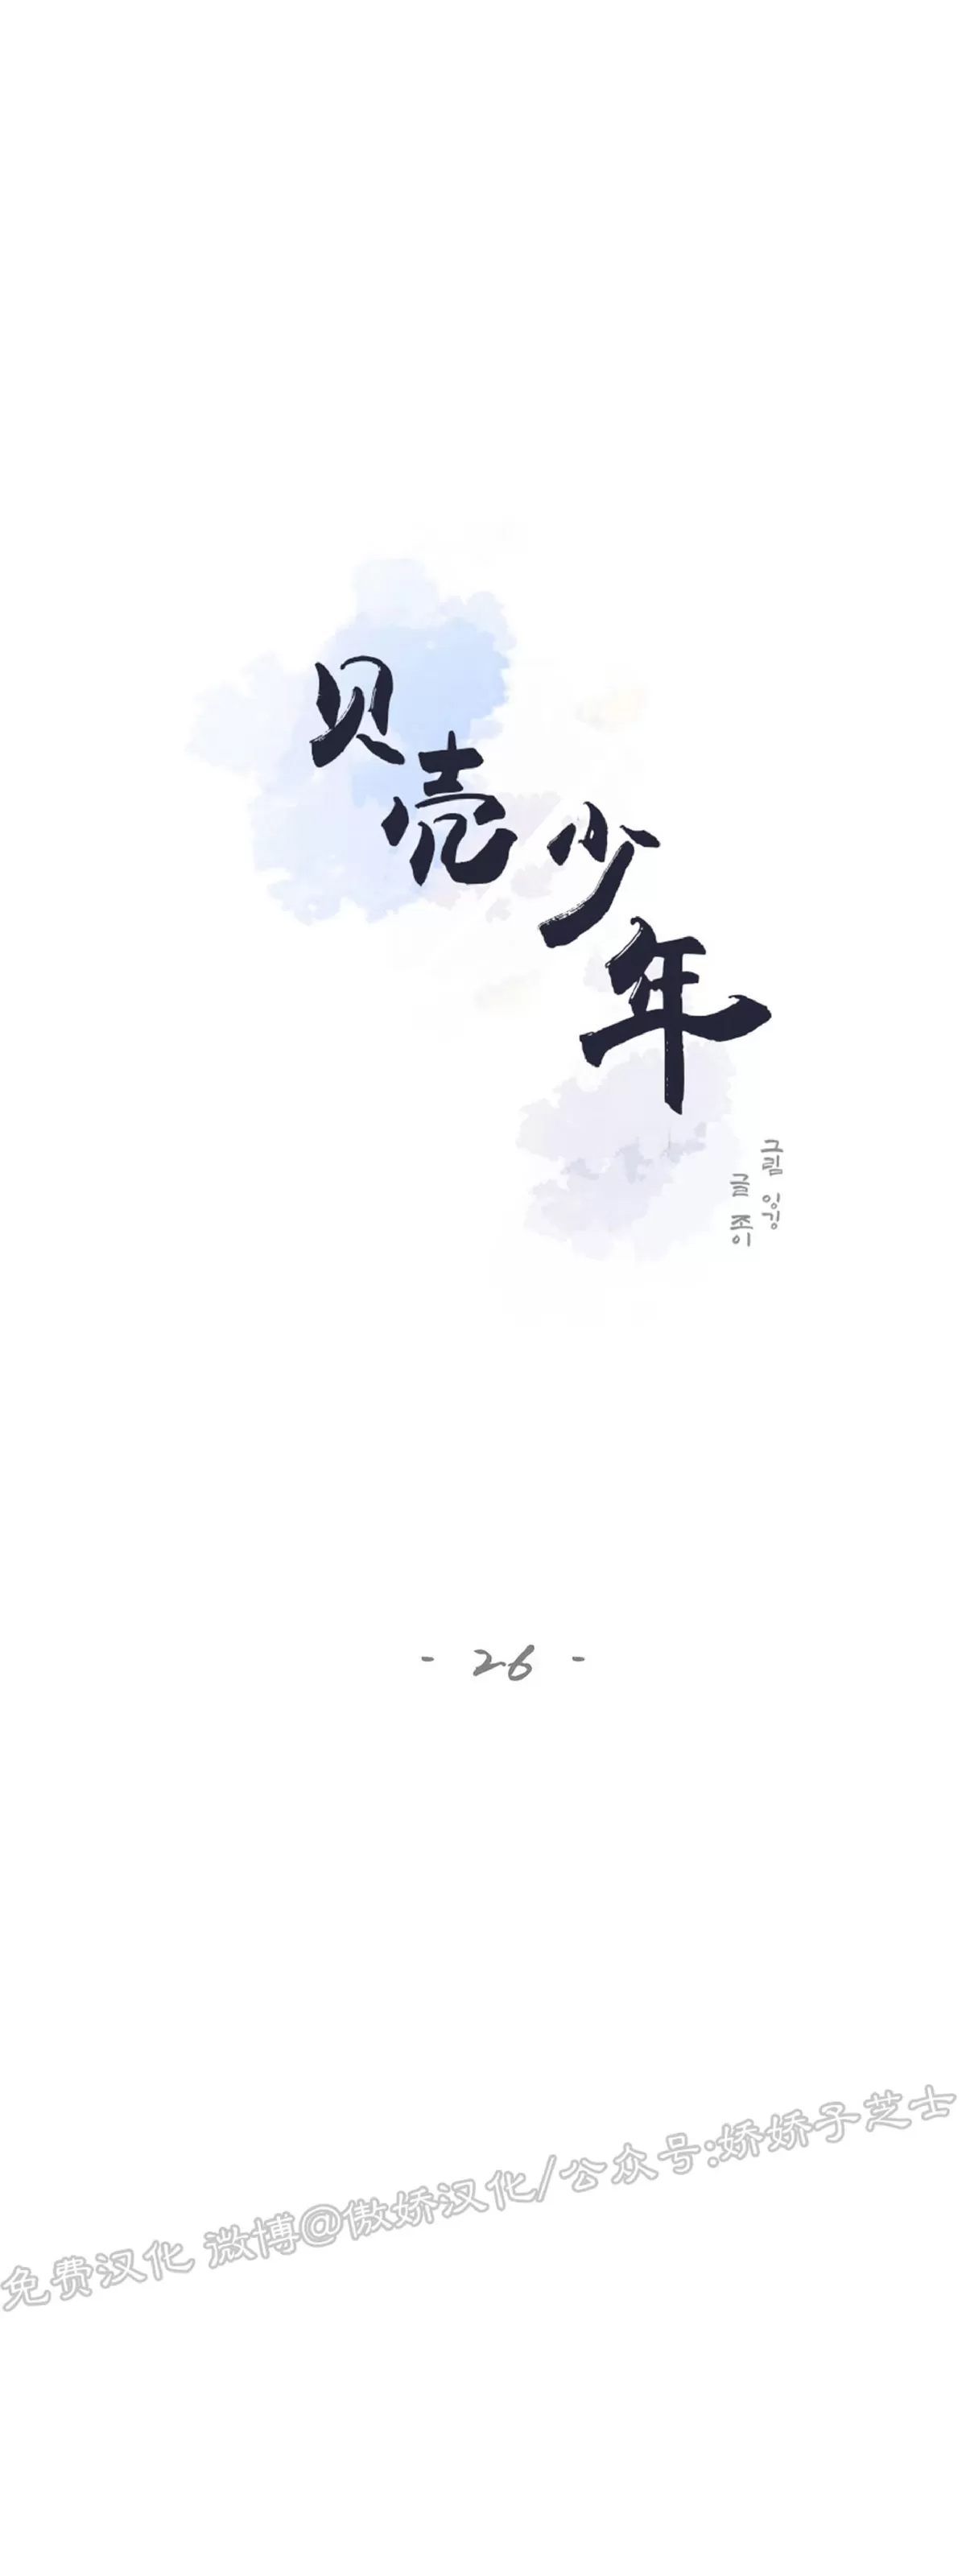 贝壳少年
그림 잉깅
글 조이
- 26 -
免费汉化 微博@傲娇汉化/公众号:娇娇子芝士